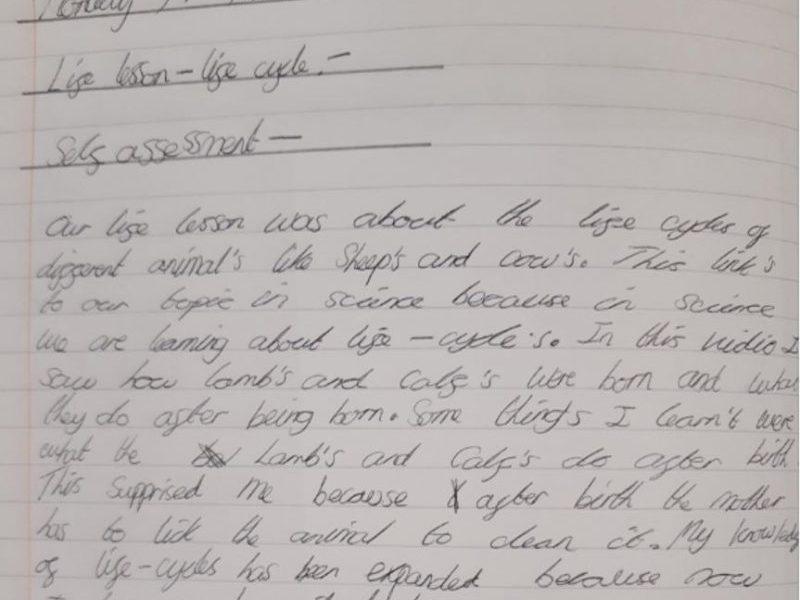 Life lesson - life cycle. -
Self assessment -
Our life lesson was about the life cycles of
different animal's like Sheep's and cow's. This link's
to our topic in science because in science
we are learning about life - cycle's. In this vidio I
saw how lamb's and Calf's were born and what
they do after being born. Some thing's I learn't were
what the Lamb's and Calf's do after birth
This supprised me because after birth the mother
has to lick the animal to clean it. My knowledge
of life-cycles has been expanded because now